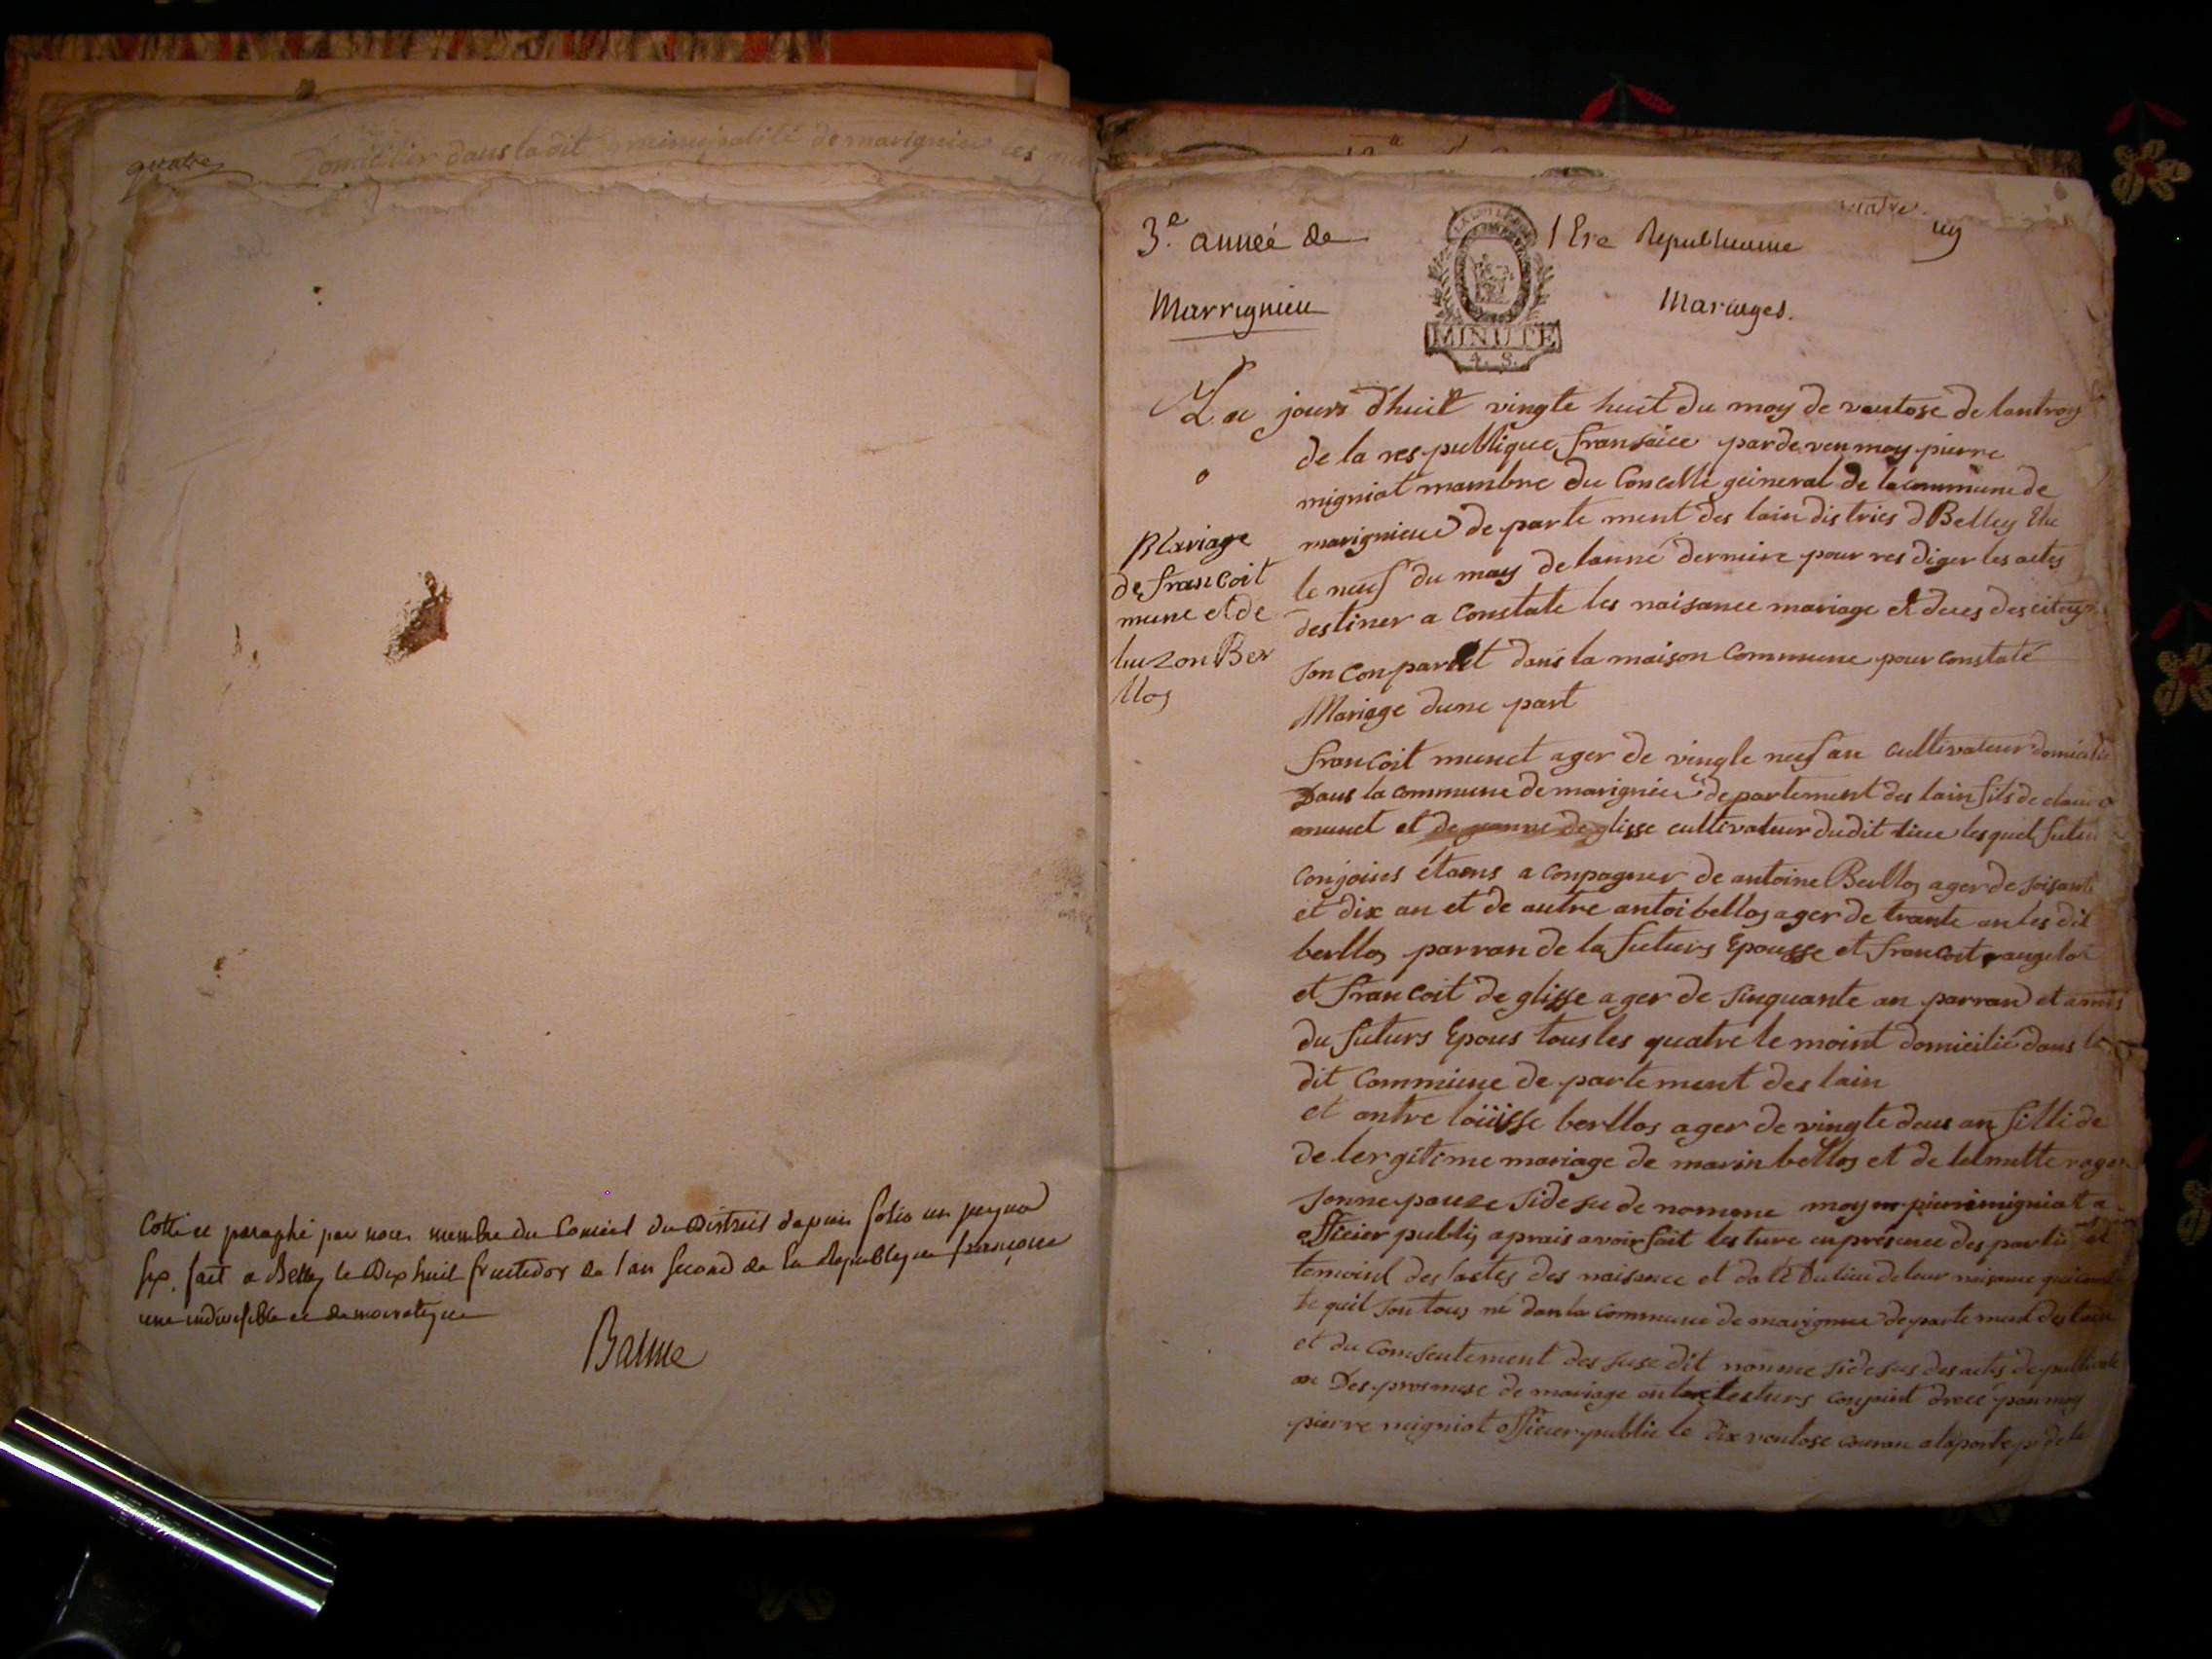 quatre
dans la dit municipalité de marignieu les
Cotté et paraphé par nous membre du Conseil du District depuis folio un jusqua
six. fait a Belley le Dix huit fructidor de l'an second de la Republique françoise
une indivisible et democratique
Balme
quatre
3.e année de l'Ere Republicaine
Marrignieu Mariages.
MINUTE
4. S.
Mariage
de francoit
mune et de
luizon Ber
llos
jours d'huit vingte huit du moy de vantose de lantroy
de la res publique fransaice par de ven moy pierre
migniot mambre du Concelle geineral de la commune de
marignieu de parte ment des lain districs d Belley Elu
le neuf du moy de lanné derniere pour res diger les actes
destiner a Constate les naisance mariage et deces des citoy
son conparut dans la maison Commune pour constaté
Mariage dune part
francoit munet ager de vingte neuf an cultivateur domicilié
Dans la commune de marignieu departement des lain fils de claude
munet et de jeanne de glisse cultivateur dudit lieu lesquel futur
conjoins étaens a conpagner de antoine Berllos ager de soisante
et dix an et de autre antoi bellos ager de trante an les dit
berllos parran de la futurs Epousse et francoit vaugelot
et francoit de glisse ager de sinquante an parran et amis
du futurs Epous tous les quatre le moint domicilié dans la
dit Commune de parte ment des lain
et antre loüisse berllos ager de vingte deus an filli de
de lergitime mariage de marin bellos et de lelmette roger
moy pierre migniot
officier public aprais avoir fait lesture en présence des partie et
temoint des lactes des naisance et date du lieu de leur naisance
te quil son tous né dan la Commune de marignieu departe ment des lain
et du Comsentement des suse dit nomme side sus des actes de
Des promese de mariage conjoint drecé par moy
pierre migniot officier public le dix vontose couran a laporte p de la